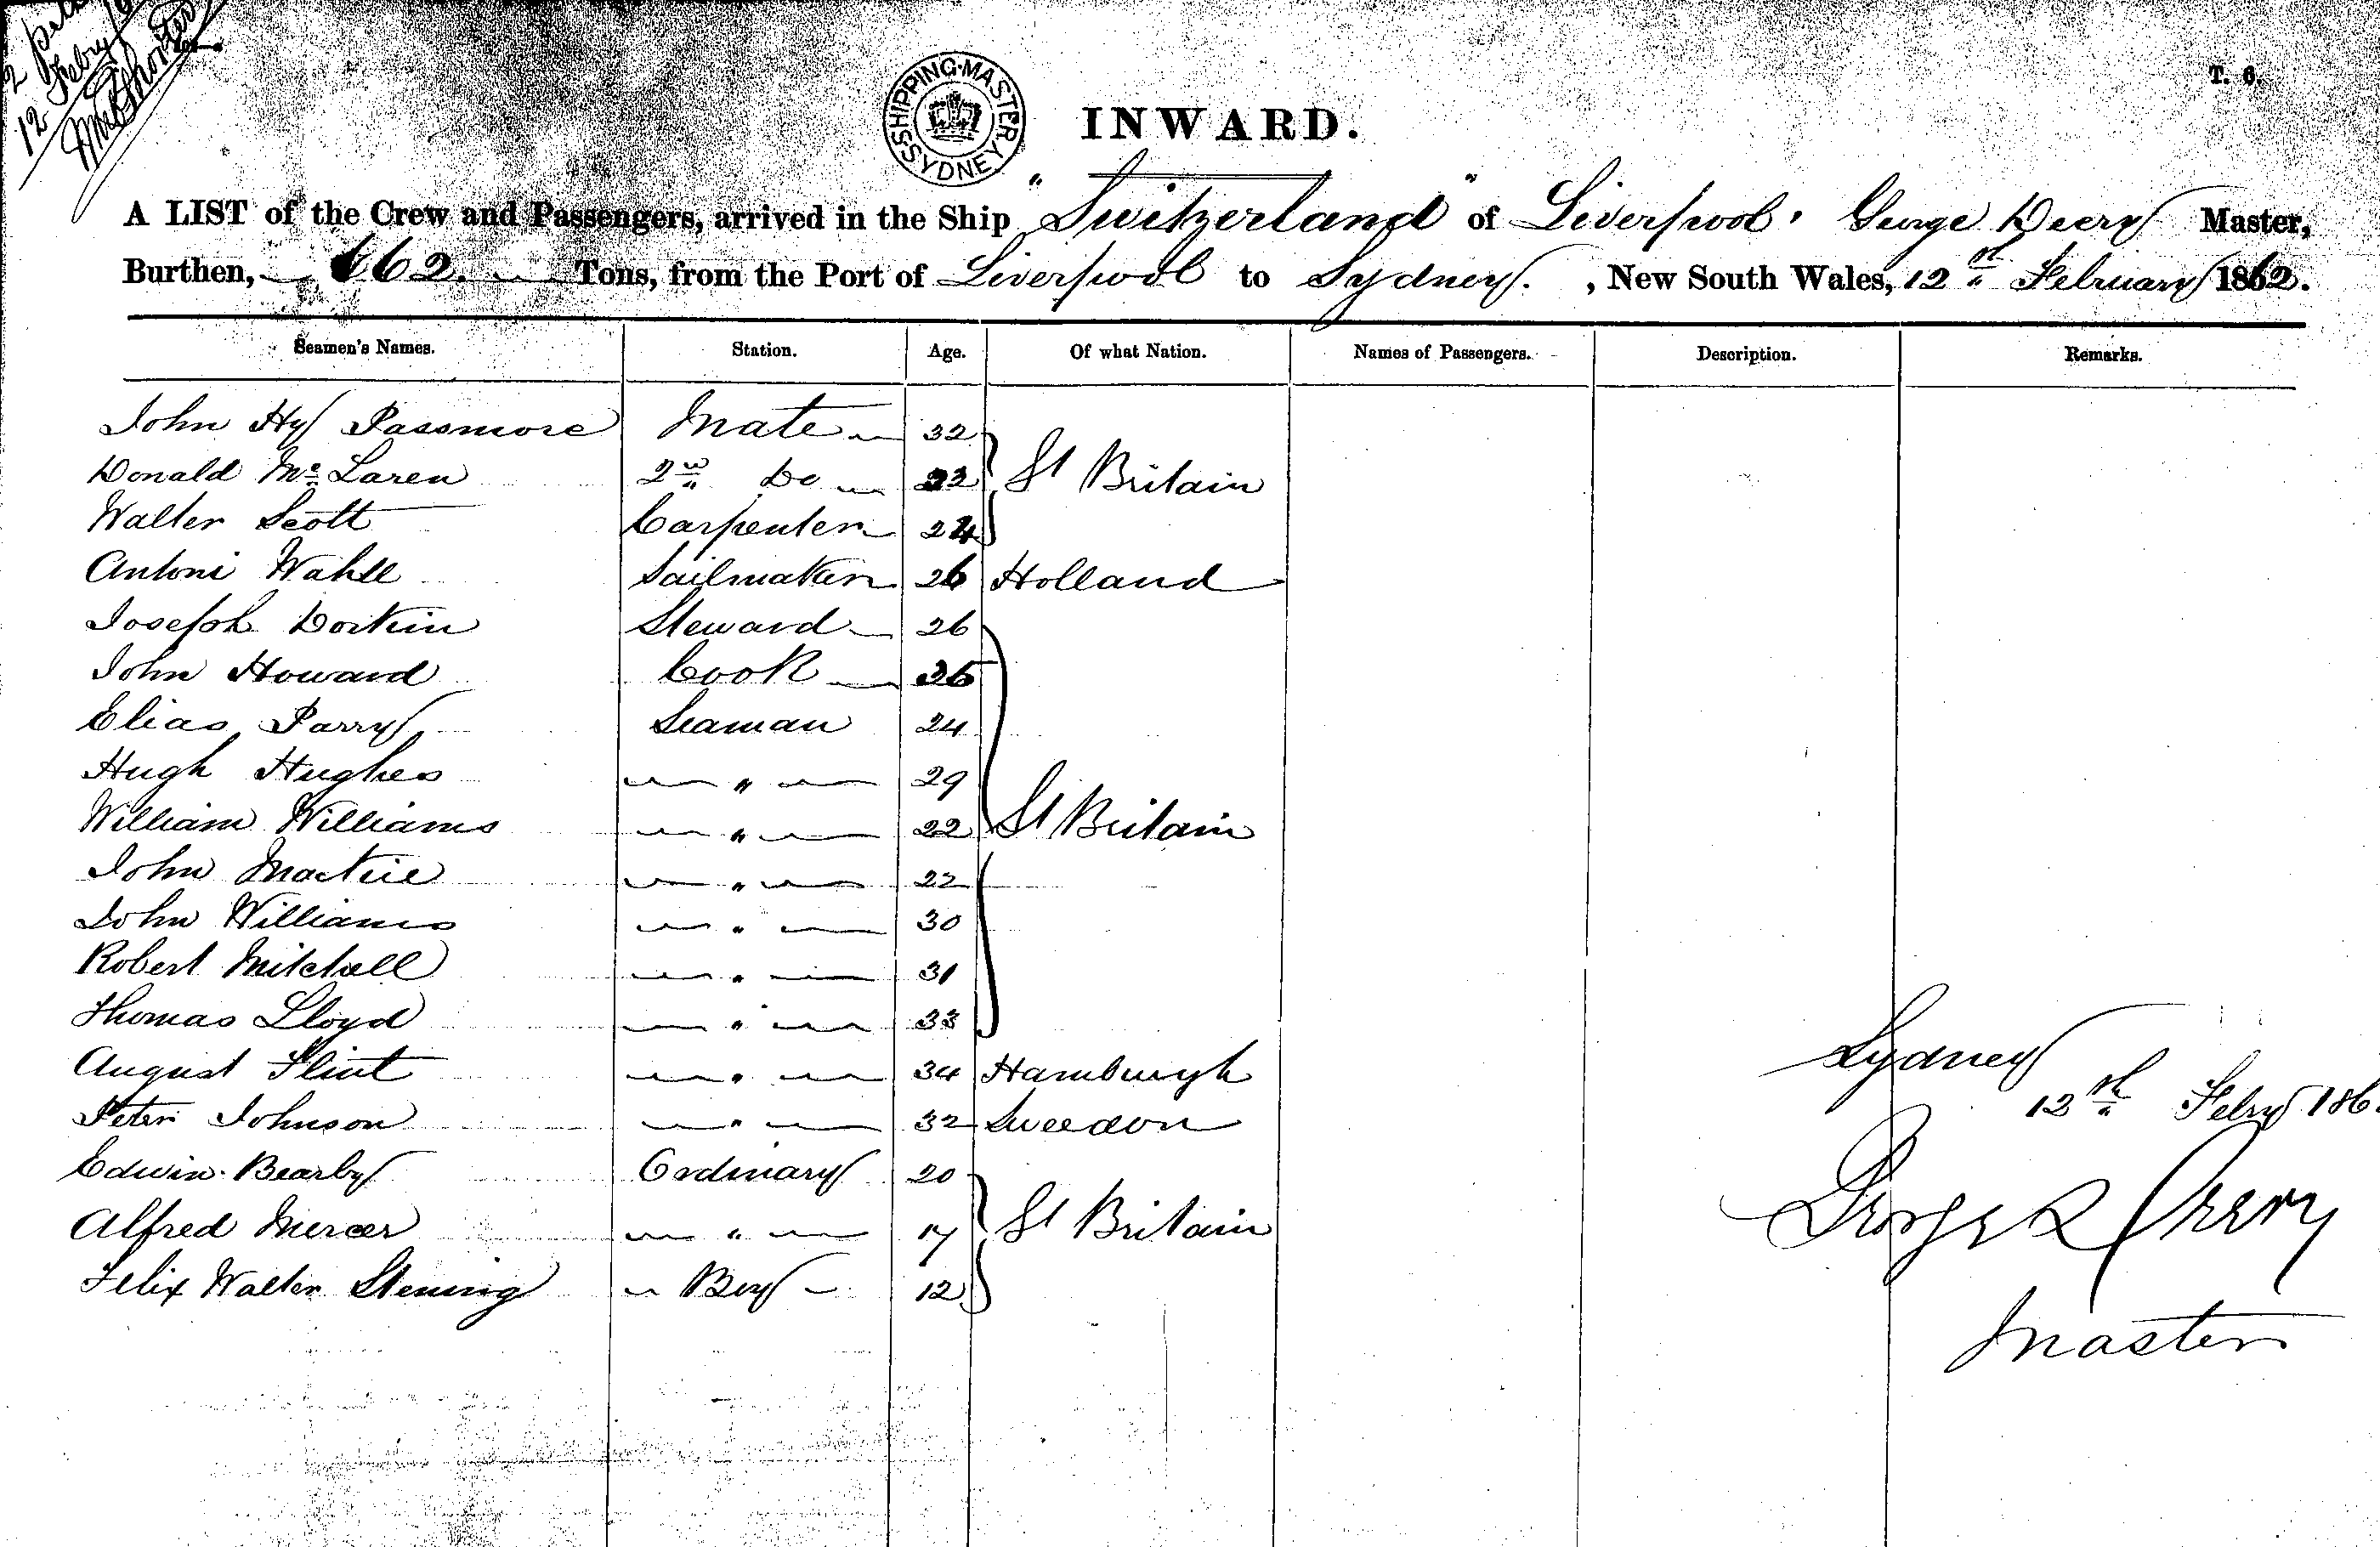 12 Feby
SHIPPING·MASTER
SYDNEY
T. 6.
INWARD.
A LIST of the Crew and Passengers, arrived in the Ship "Switzerland" of Liverpool, George Deery Master,
Burthen, 662. Tons, from the Port of Liverpool to Sydney. , New South Wales, 12th February 1862.
Seamen's Names. Station. Age. Of what Nation. Names of Passengers. Description. Remarks.
John Hy Passmore Mate 32
Donald Mc Laren 2nd Do 22 Gt Britain
Walter Scott Carpenter 24
Antoni Wahll Sailmaker 26 Holland
Joseph Steward 26
John Howard Cook
Elias Parry Seaman 24
Hugh Hughes " 29
William Williams " 22 Gt Britain
John Mackie " 22
John Williams " 30
Robert Mitchell " 31
Thomas Lloyd " 33
August Flint " 34 Hamburgh
Peter Johnson " 32 Sweedon
Edwin Bearby Ordinary 20
Alfred Mercer " 17 Gt Britain
Felix Walter Stening Boy 12
Sydney
12th Feby 186
George Deery
Master